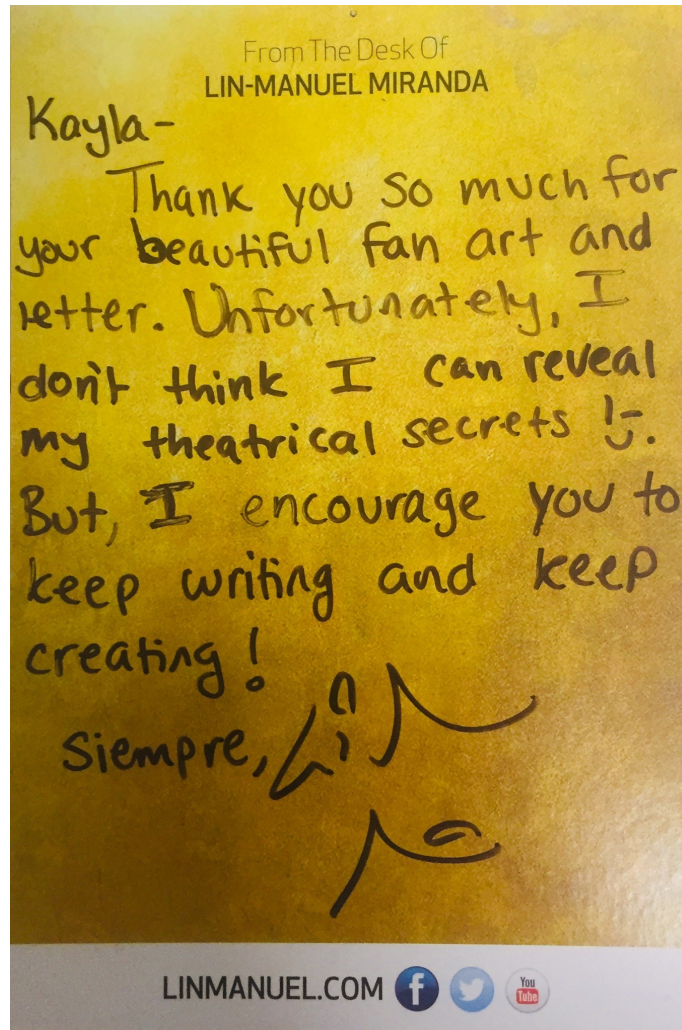 From The Desk Of
LIN-MANUEL MIRANDA
Kayla-
Thank you so much for
your beautiful fan art and
letter. Unfortunately, I
don't think I can reveal
my theatrical secrets !-).
But, I encourage you to
keep writing and keep
creating!
Siempre,
LINMANUEL.COM
You
Tube